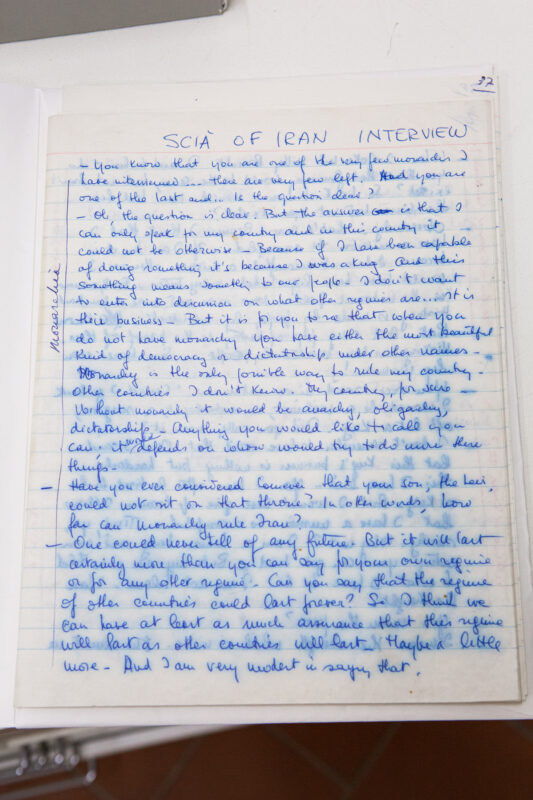 37
SCIÀ OF IRAN INTERVIEW
- You know that you are one of the very few monarchs I
have interviewed... there are very few left. And you are
one of the last and... Is the question clear?
- Oh, the question is clear. But the answer is that I
can only speak for my country and in this country it
could not be otherwise - Because if I have been capable
of doing something it's because I was a king. And this
something means something to our people - I don't want
to enter into discussion on what other regimes are... It is
their business - But it is for you to see that when you
do not have monarchy you have either the most beautiful
kind of democracy or dictatorship under other names -
Monarchy is the only possible way to rule my country -
Other countries I don't know. My country, for sure -
Without monarchy it would be anarchy, oligarchy,
dictatorship - Anything you would like to call you
can. it would depends on whow would try to do more these
things -
- Have you ever considered however that your son, the heir,
could not sit on that throne? In other words, how
far can monarchy rule Iran?
- One could never tell of any future. But it will last
certainly more than you can say for your own regime
or for any other regime - Can you say that the regime
of other countries could last forever? So I think we
can have at least as much assurance that this regime
will last as other countries will last - Maybe a little
more - And I am very modest in saying that.
Monarchia